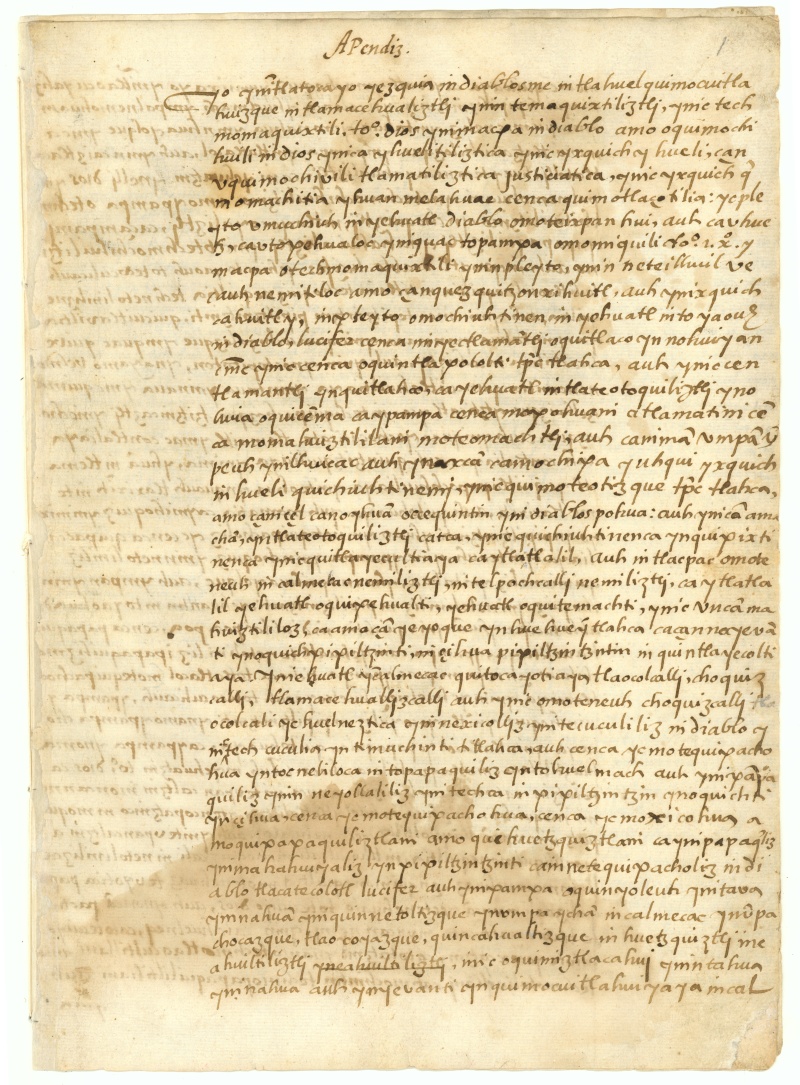 APendiz.
1
yo ynitlatocayo yezquia in diablosme in tlahuelquimocuitla
huizque in tlamacehualiztli ynin temaquixtiliztli, ynic tech
momaquixtili. toº. dios ynimacpa in diablo amo oquimochi
huili in dios ynica yhuelitiliztica ynic yxquich y hueli, çan
oquimochivili tlamatiliztica justiciatica, ynic yxquich
momachitia yhuan melahuac cenca quimotlaçotilia: yc ple
yto omuchiuh in yehuatl diablo omoteixpanhui, auh ca yhue
ca yc opehualoc yniquac topampa omomiquili toº. y
macpa otechmomaquixtili ynin pleyto, ynin neteilhuil ye
auh nemitiloc amo çanquezquitzonxihuitl, auh ynixquich
cahuitl y, in pleyto omochiuhtinen, in yehuatl in toyaouh
in diablo, lucifer cenca miectlamantli oquitlaco yn nohuiyan
ynic cenca oquintlapololti tpc tlaca, auh ynic cen
tlamantli ynquitlaco, ca yehuatl in tlateotoquiliztli yno
huia oquicenma ca ypampa cenca mopohuani atlamatini cen
ca momahuiztililani moteomachtli, auh canniman umpan
peuh ynilhuicac auh ynaxcan camochipa yuhqui yxquich
in hueli quichiuhtinemi, ynic quimoteotizque tpc tlaca,
amo çaniçel çano yhuan ocequintin yni diablospohua: auh ynican ama
chan, yntlateotoquiliztli catca, ynic quichiuhtinenca ynquipixti
nenca ynicquitlayecultiaya ca ytlatlalil, auh in tlacpac omote
neuh in calmecac nemiliztli, in telpochcalli nemiliztli, ca ytlatla
lil yehuatl oquipehualti, yehuatl oquitemachti, ynic uncan ma
huiztililoz, ca amo can yeyoque yn huehueyntlaca cacanno yevan
ti ynoquichpipiltzinti, in çihua pipiltzintzintin in quintlayecolti
aya. yn iehuatl yncalmecac quitocayotiaya, tlaocolcalli, choquiz
calli, tlamacehuallizcalli auh ynic omoteneuh choquizcalli tla
ocolcali yc huelneztica yninexicolliz ynitecuculiliz in diablo y
nic tech cuculia, yn timuchinti titlaca, auh cenca yc motequipacho
hua yntocneliloca in topapaquiliz yntohuelmach auh ynipapa
quiliz ynin neyollaliliz yn techca in pipiltzintzin ynoquichti
yn çihua, cenca yc motequipachohua, cenca yc moxicohua a
moquipapaquiliztlani amo quehuetzquiztlani ca ynipapaquiliz
ynimahahuiyaliz, yn pipiltzintzinti cainnetequipacholiz in di
ablo tlacatecolotl lucifer auh ynipampa oquinyoleuh ynitava
yninahuan ynquinnetoltizque ynompa ychan in calmecac yn unpa
chocazque, tlaocoyazque, quincahualtizque in huetzquiztli ine
ahuiltiliztli yneahuiltiliztli, inic oquimiztlacahui ynintahua
yninahua auh ynyevanti ynquimocuitlahuiyaya incal